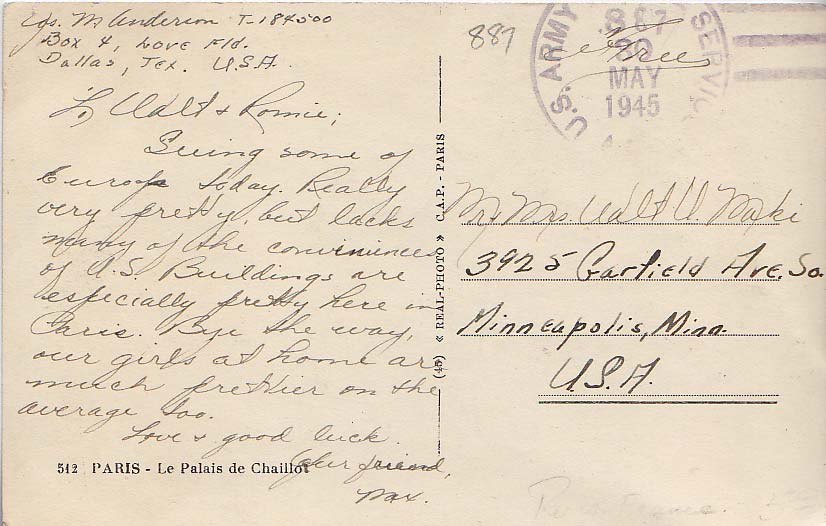 M. Anderson T-184500
Box 4, Love Fld.
Dallas, Tex. U.S.A.
To Walt & Romie;
Seeing some of
Europe today. Really
very pretty, but lacks
many of the conviniences
of U.S. Buildings are
especially pretty here in
Paris. Bye the way,
our girls at home are
much prettier on the
average too.
Love & good luck.
Your friend,
Max.
512 PARIS - Le Palais de Chaillot
(45) « REAL-PHOTO » C.A.P. - PARIS
887
Free
U.S. ARMY SERVIC
887
30
MAY
1945
Mr & Mrs. Walt W. Maki
3925 Garfield Ave. So.
Minneapolis, Minn.
U.S.A.